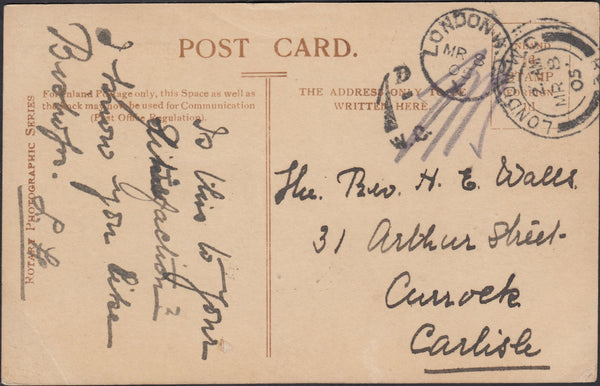 POST CARD.
For Inland Postage only, this Space as well as
the back may now be used for Communication
(Post Office Regulation).
THE ADDRESS ONLY TO BE
WRITTEN HERE.
ROTARY PHOTOGRAPHIC SERIES
LONDON W.C
MR 8
05
LONDON W.C
MR 8
05
W.C.
Is this to your
satisfaction?
I know you like
The Rev. H. E. Walls.
31 Arthur Street.
Currock
Carlisle